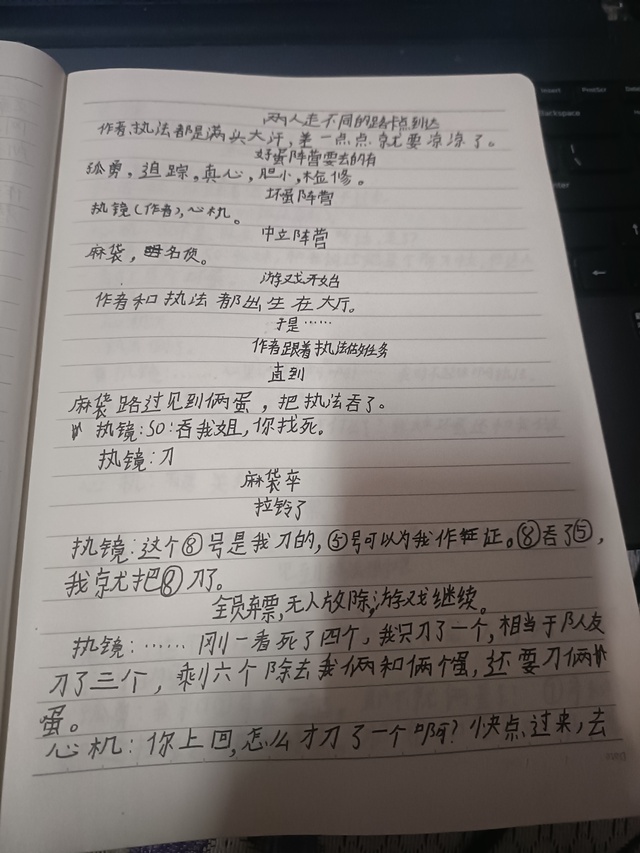 两人走不同的路卡点到达
作者,执法都是满头大汗,差一点点就要凉凉了。
好蛋阵营要去的有
孤勇,追踪,真心,胆小,检修。
坏蛋阵营
执镜(作者),心机。
中立阵营
麻袋,名侦。
游戏开始
作者和执法都出生在大厅。
于是……
作者跟着执法做任务
直到
麻袋路过见到俩蛋,把执法吞了。
执镜:SO:吞我姐,你找死。
执镜:刀
麻袋卒
拉铃了
执镜:这个⑧号是我刀的,⑤号可以为我作证。⑧吞了⑤,
我就把⑧刀了。
全员弃票,无人放除,游戏继续。
执镜:……刚一看死了四个,我只刀了一个,相当于队友
刀了三个,剩六个除去我俩和俩个蛋,还要刀俩
蛋。
心机:你上回,怎么才刀了一个啊?快点过来,去
Insert
PrtScr
Delete
Backspace